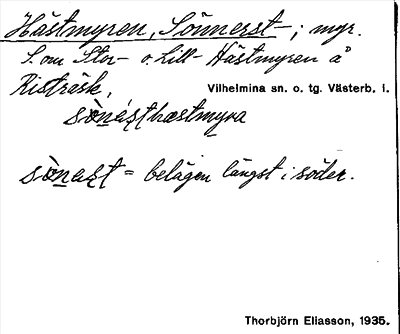 Hästmyren, Sönnerst-; myr.
S. om Stor- o. Lill-Hästmyren å
Risträsk,
Vilhelmina sn. o. tg. Västerb. l.
sònést hæstmyra
sònest = belägen längst i söder.
Thorbjörn Eliasson, 1935.